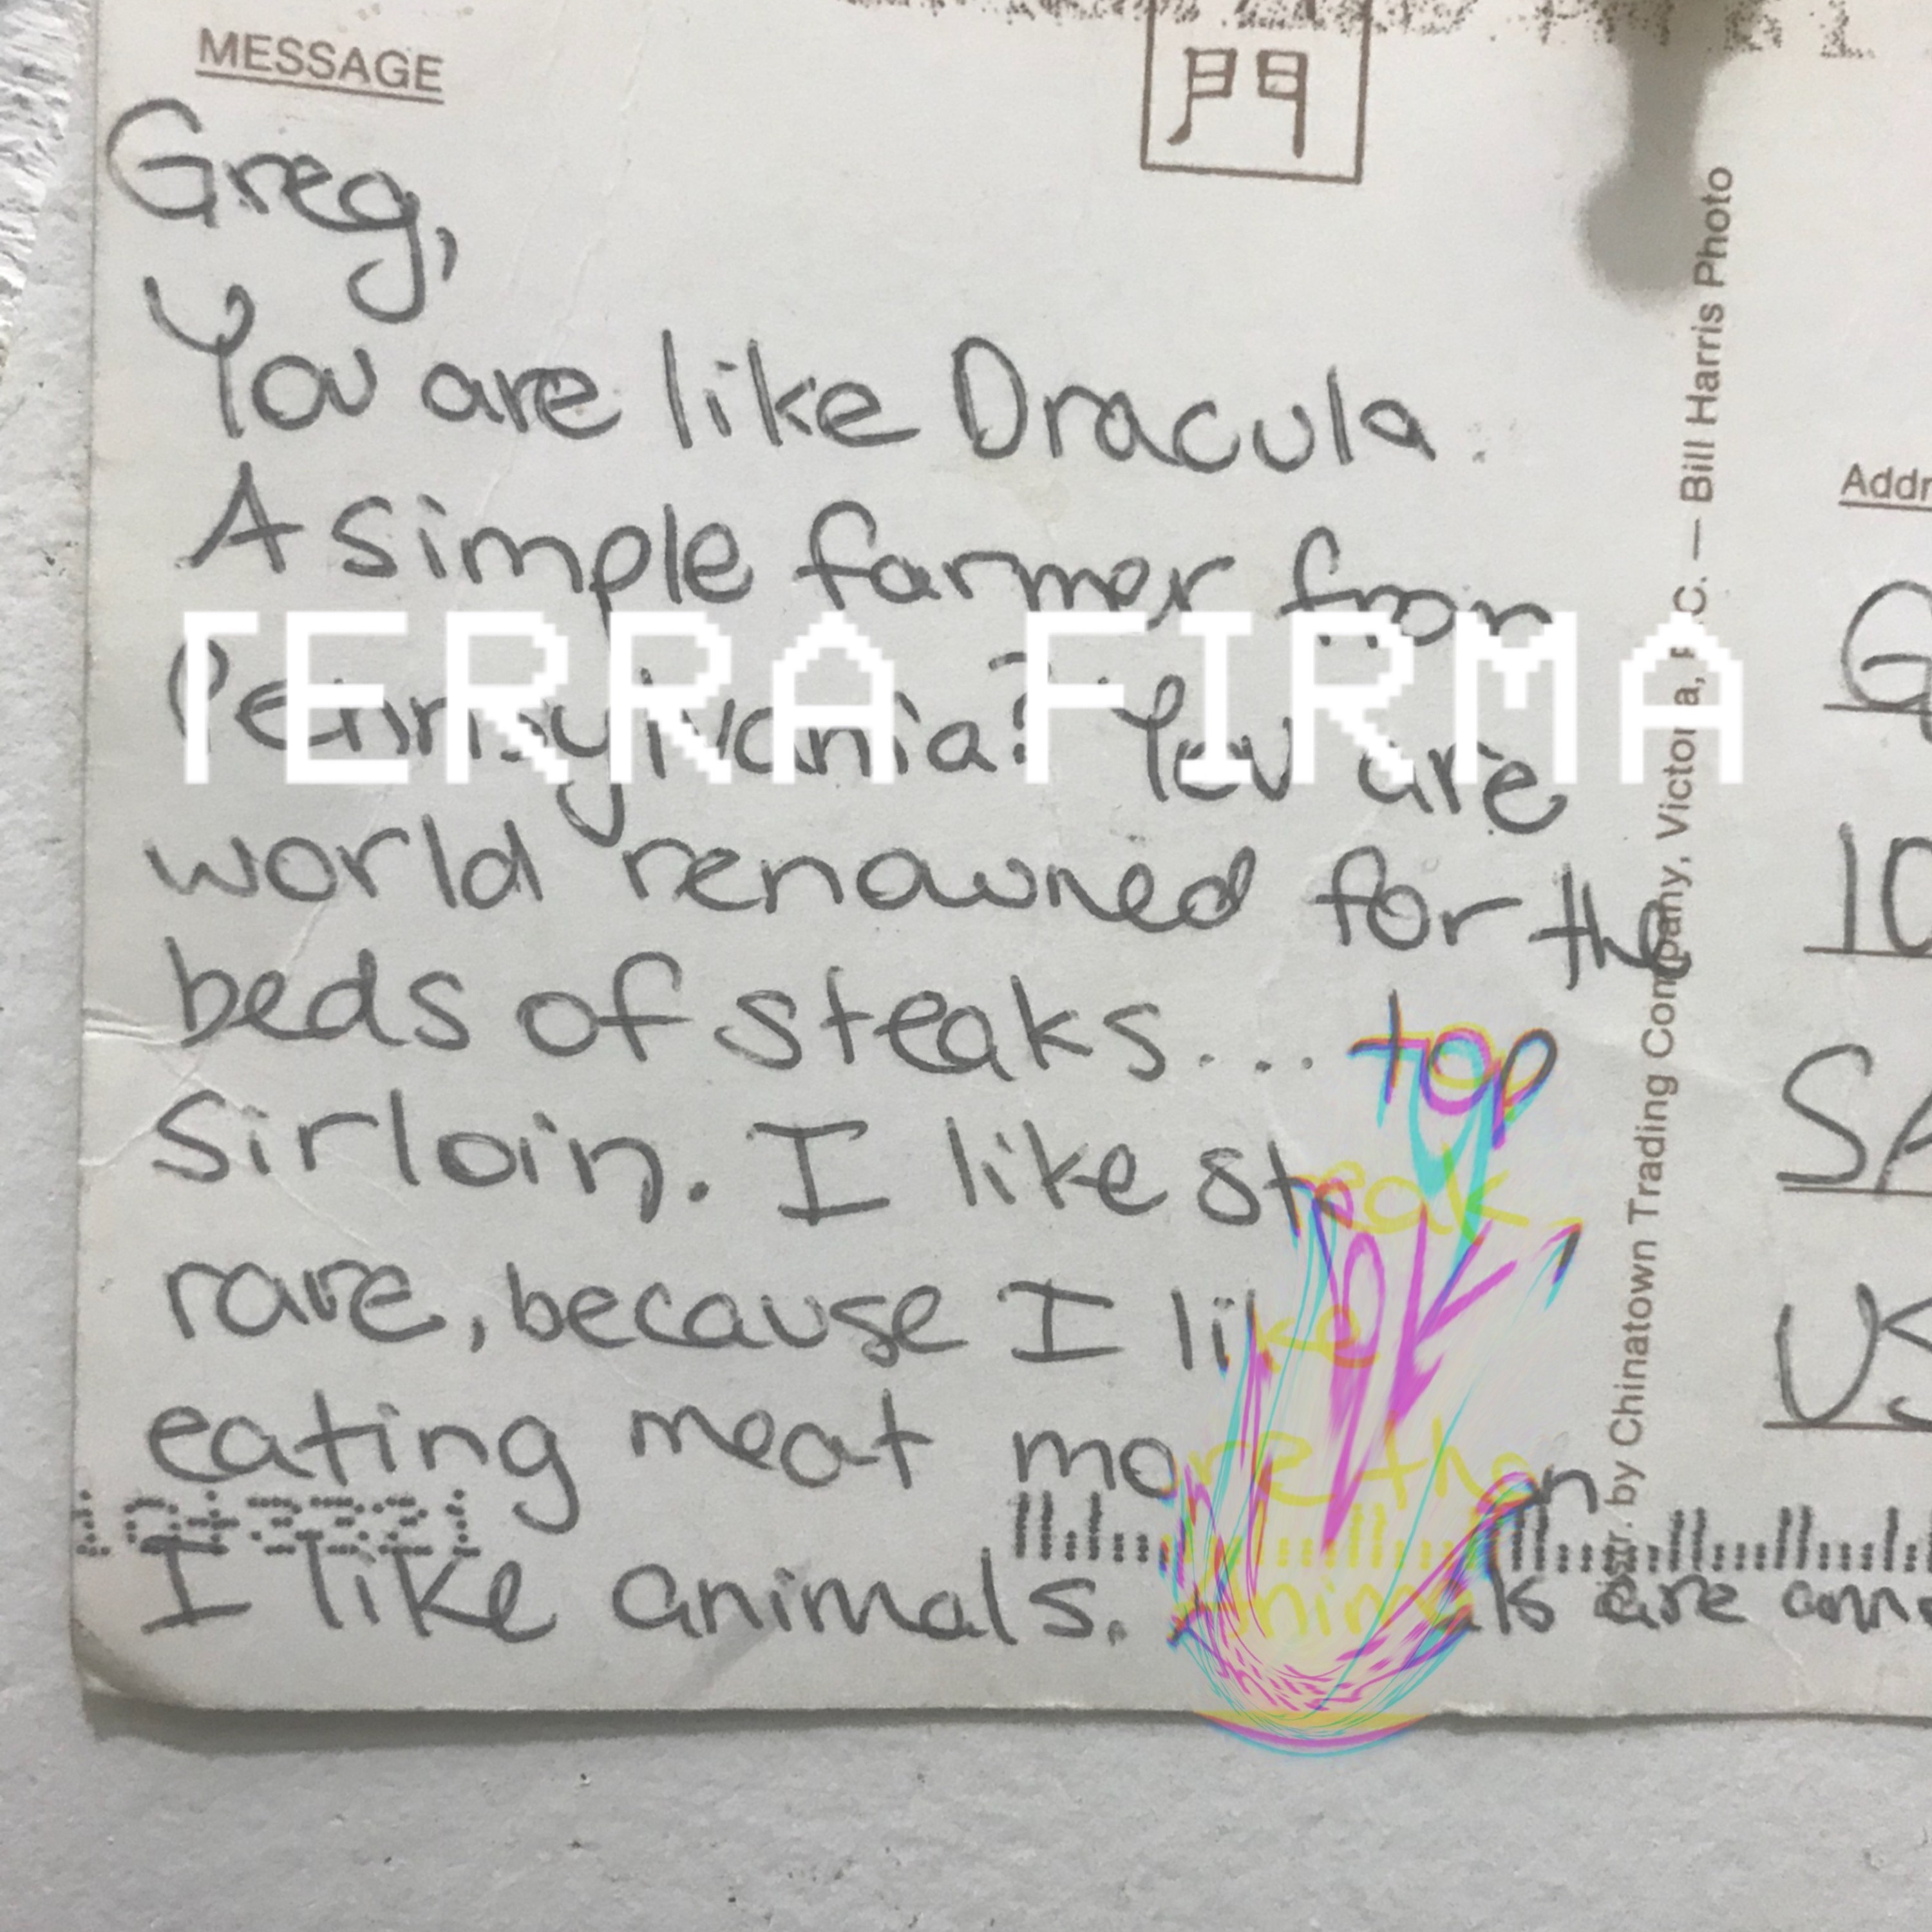 MESSAGE
門
Greg,
You are like Dracula.
A simple farmer from
TERRA FIRMA
Pennsylvania? You are
world renowned for the
beds of steaks... top
sirloin. I like steak
rare, because I like
eating meat more than
I like animals. Animals are
Distr. by Chinatown Trading Company, Victoria, B.C. — Bill Harris Photo
Addr
G
10
SA
US